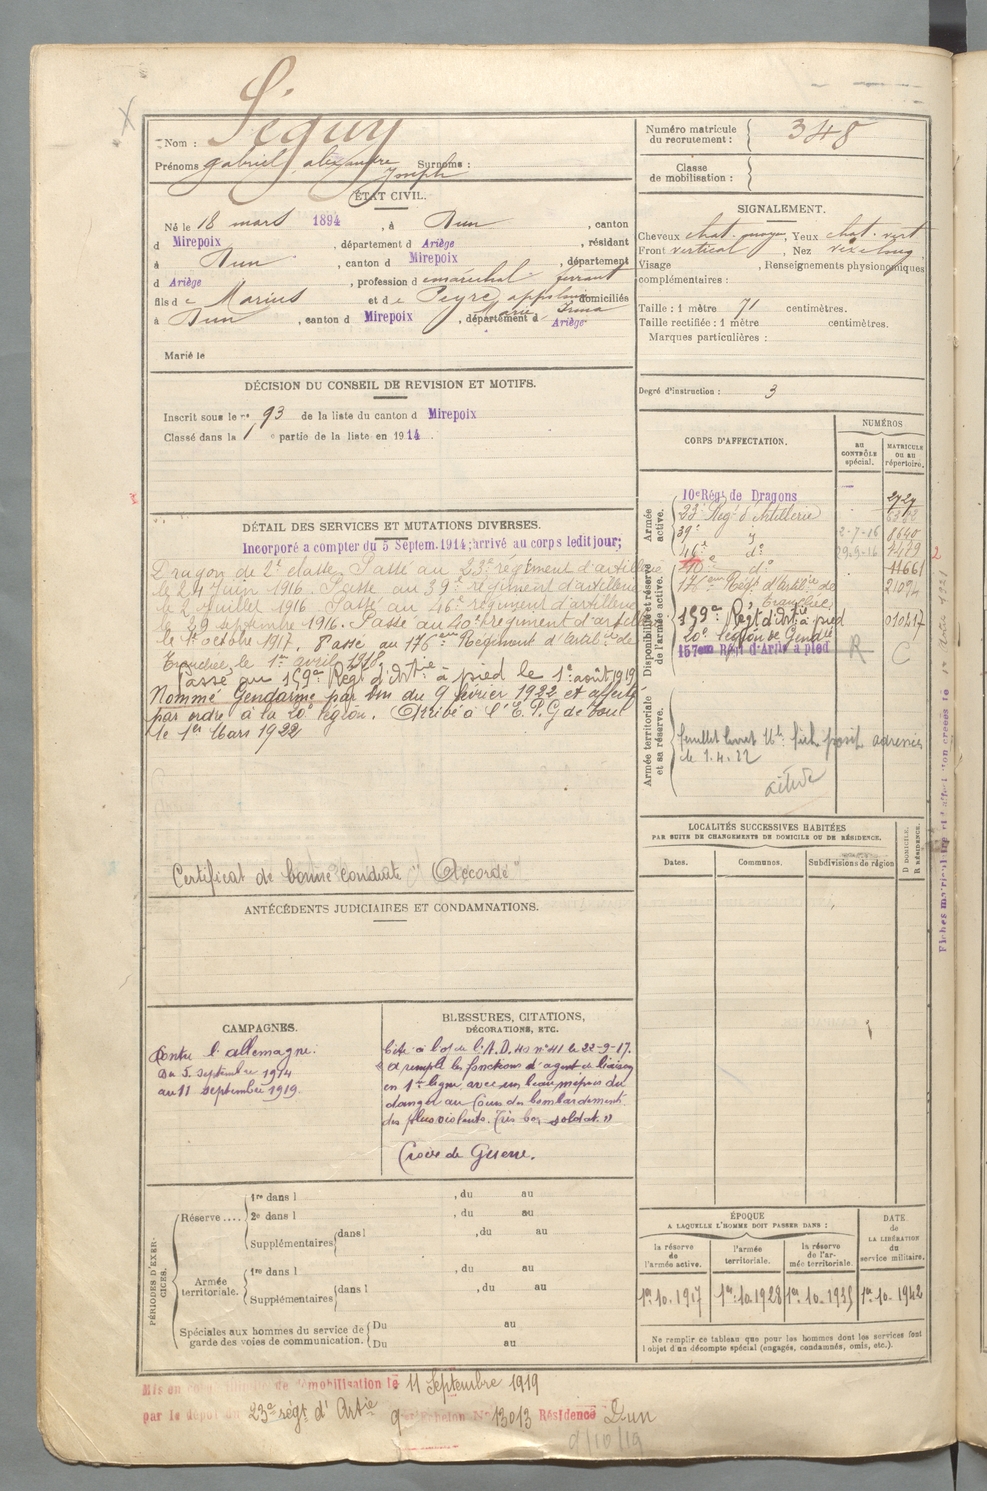 Nom : Séguy
Prénoms gabriel, alexandre Joseph Surnoms :
ÉTAT CIVIL.
Né le 18 mars 1894, à Dun, canton
d Mirepoix, département d Ariège, résidant
à Dun, canton d Mirepoix, département
d Ariège, profession d maréchal ferrant
fils de Marius et de Peyre, appolonie Marie Irma domiciliés
à Dun, canton d Mirepoix, département d Ariège
Marié le
DÉCISION DU CONSEIL DE REVISION ET MOTIFS.
Inscrit sous le n° 93 de la liste du canton d Mirepoix
Classé dans la 1e partie de la liste en 1914
DÉTAIL DES SERVICES ET MUTATIONS DIVERSES.
Incorporé a compter du 5 Septem. 1914; arrivé au corps ledit jour;
Dragon de 2e classe. Passé au 23e régiment d'artillerie
le 24 Juin 1916. Passé au 39e régiment d'artillerie
le 2 Juillet 1916. Passé au 46e régiment d'artillerie
le 29 septembre 1916. Passé au 40e régiment d'artillerie
le 1er octobre 1917. Passé au 176eme Régiment d'Artilie de
Tranchée, le 1er avril 1918.
Passé au 159e Régt d'Artie à pied le 1er août 1919
Nommé Gendarme par du 9 février 1922 et affecté
par ordre à la 20e légion. Arrivé à l'E.P.G de Toul
le 1er Mars 1922
Certificat de bonne conduite "Accordé"
ANTÉCÉDENTS JUDICIAIRES ET CONDAMNATIONS.
CAMPAGNES.
Contre l'allemagne.
Du 5 septembre 1914
au 11 septembre 1919.
BLESSURES, CITATIONS,
DÉCORATIONS, ETC.
Cité à l'o/ de l'A.D. 40 n° 41 le 22-9-17.
"A rempli les fonctions d'agent de liaison
en 1re ligne avec un beau mépris du
danger au cours des bombardements
des plus violents. Très bon soldat."
Croix de Guerre.
PÉRIODES D'EXERCICES.
Réserve....
1re dans l , du au
2e dans l , du au
Supplémentaires dans l , du au
Armée territoriale.
1re dans l , du au
Supplémentaires dans l , du au
Spéciales aux hommes du service de garde des voies de communication.
Du au
Du au
Numéro matricule du recrutement : 348
Classe de mobilisation :
SIGNALEMENT.
Cheveux chat. moyen, Yeux chat. vert
Front vertical, Nez
Visage , Renseignements physionomiques
complémentaires :
Taille : 1 mètre 71 centimètres.
Taille rectifiée : 1 mètre centimètres.
Marques particulières :
Degré d'instruction : 3
CORPS D'AFFECTATION.
NUMÉROS
au CONTRÔLE spécial.
MATRICULE ou au répertoire.
Armée active.
10e Régt de Dragons 2727
23e Régt d'Artillerie
39e d° 2-7-16 8640
46e d° 29-9-16
Disponibilité et réserve de l'armée active.
40e d° 11661
176eme Régt d'Artilie de Tranchée 21094
159e Régt d'Artie à pied 010217
20e légion de Gendie R C
157em Régt d'Artie à pied
Armée territoriale et sa réserve.
feuillet livret adressés
le 1.4.22
LOCALITÉS SUCCESSIVES HABITÉES
PAR SUITE DE CHANGEMENTS DE DOMICILE OU DE RÉSIDENCE.
Dates.
Communes.
Subdivisions de région
D DOMICILE.
R RÉSIDENCE.
ÉPOQUE
A LAQUELLE L'HOMME DOIT PASSER DANS :
la réserve de l'armée active.
l'armée territoriale.
la réserve de l'armée territoriale.
DATE de LA LIBÉRATION du service militaire.
1er 10. 1917
1er 10. 1928
1er 10. 1935
1er 10. 1942
Ne remplir ce tableau que pour les hommes dont les services font
l'objet d'un décompte spécial (engagés, condamnés, omis, etc.).
Mis en de démobilisation le 11 Septembre 1919
par le dépôt du 23e régt d'Artie 9e Echelon N° 13013 Résidence Dun
9/10/19